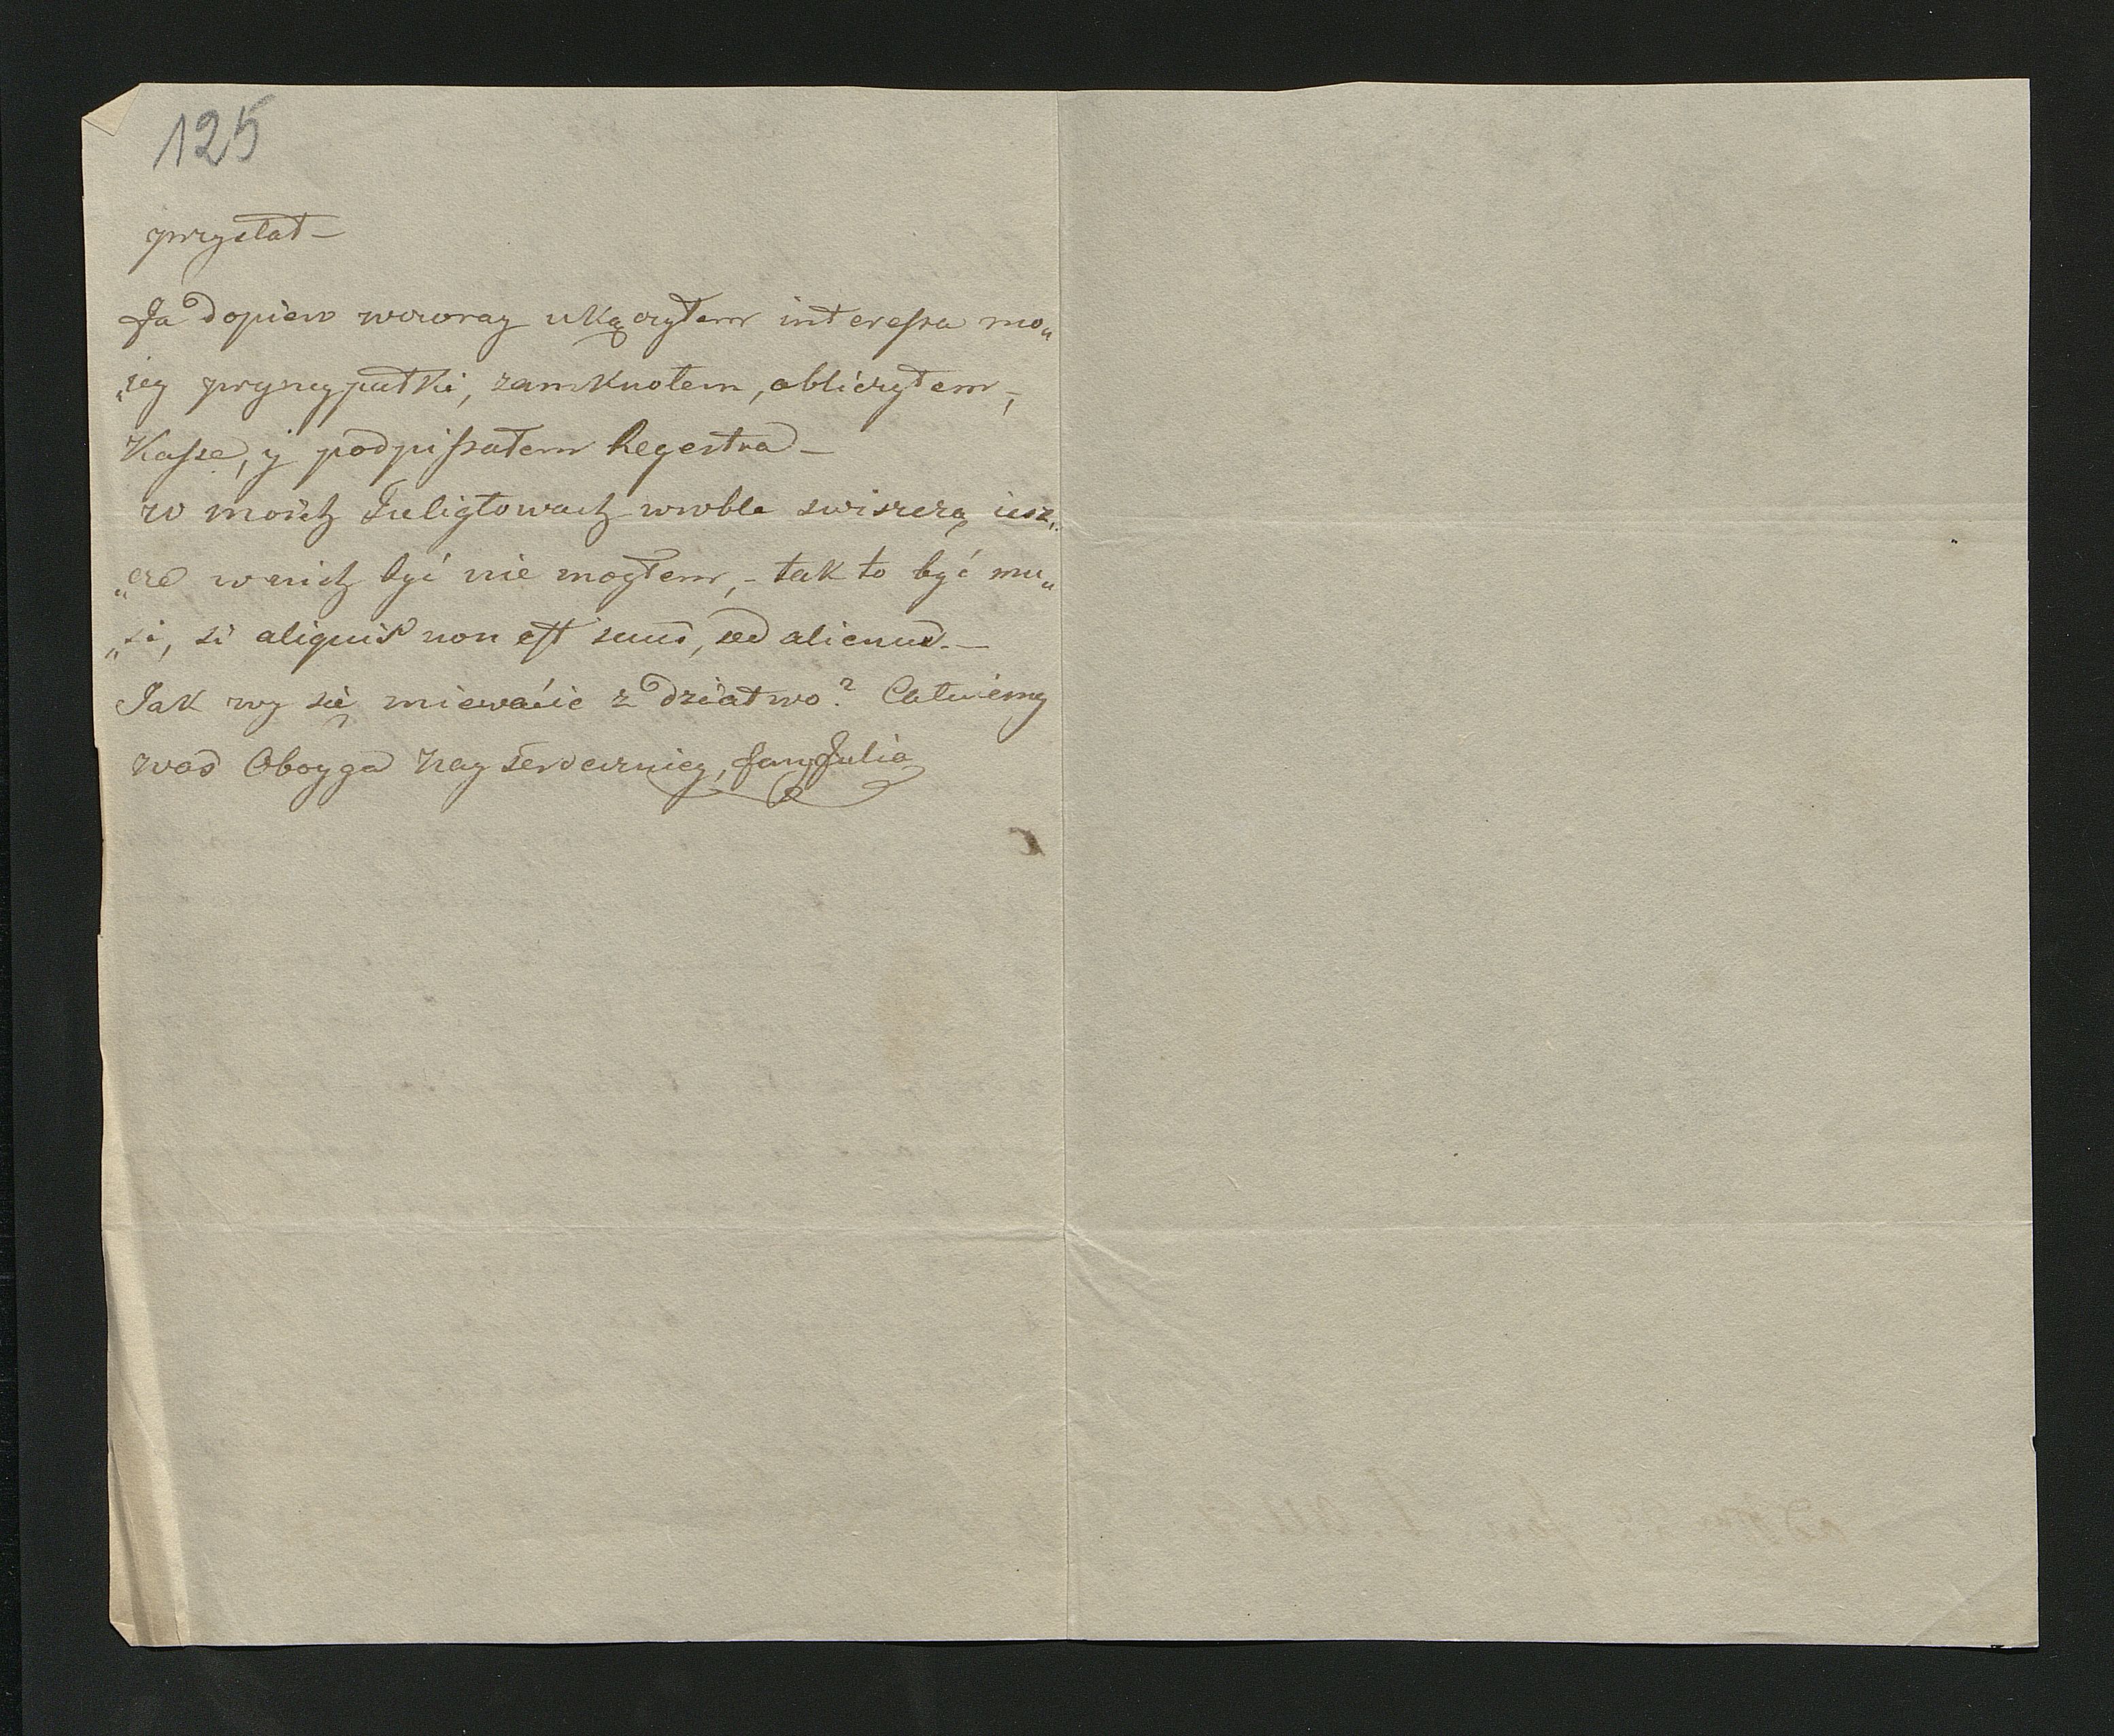 125
przysłał —
Ja dopiero wczoray ukączyłem interessa mo„
„iey pryncypałki, zamknołem, obliczyłem,
Kasse, y podpissałem Regestra —
w moich Tuligłowach wroble swiszczą iesz„
„cze w nich być nie mogłem, — tak to być mu„
„si, si aliquis non est suus, sed alienus. —
Jak wy się miewacie z dziatwo? Całuiemy
was Oboyga Nayserdeczniey, Jan Julia